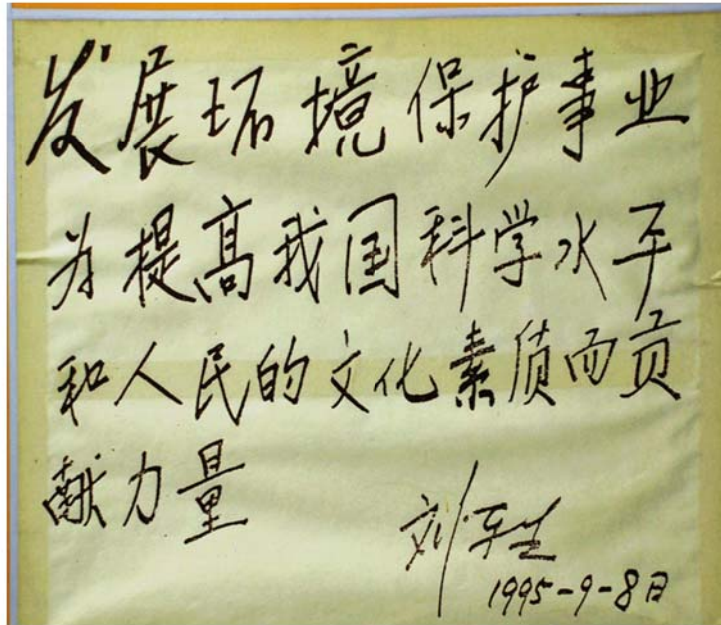 发展环境保护事业
为提高我国科学水平
和人民的文化素质而贡
献力量
刘东生
1995-9-8日